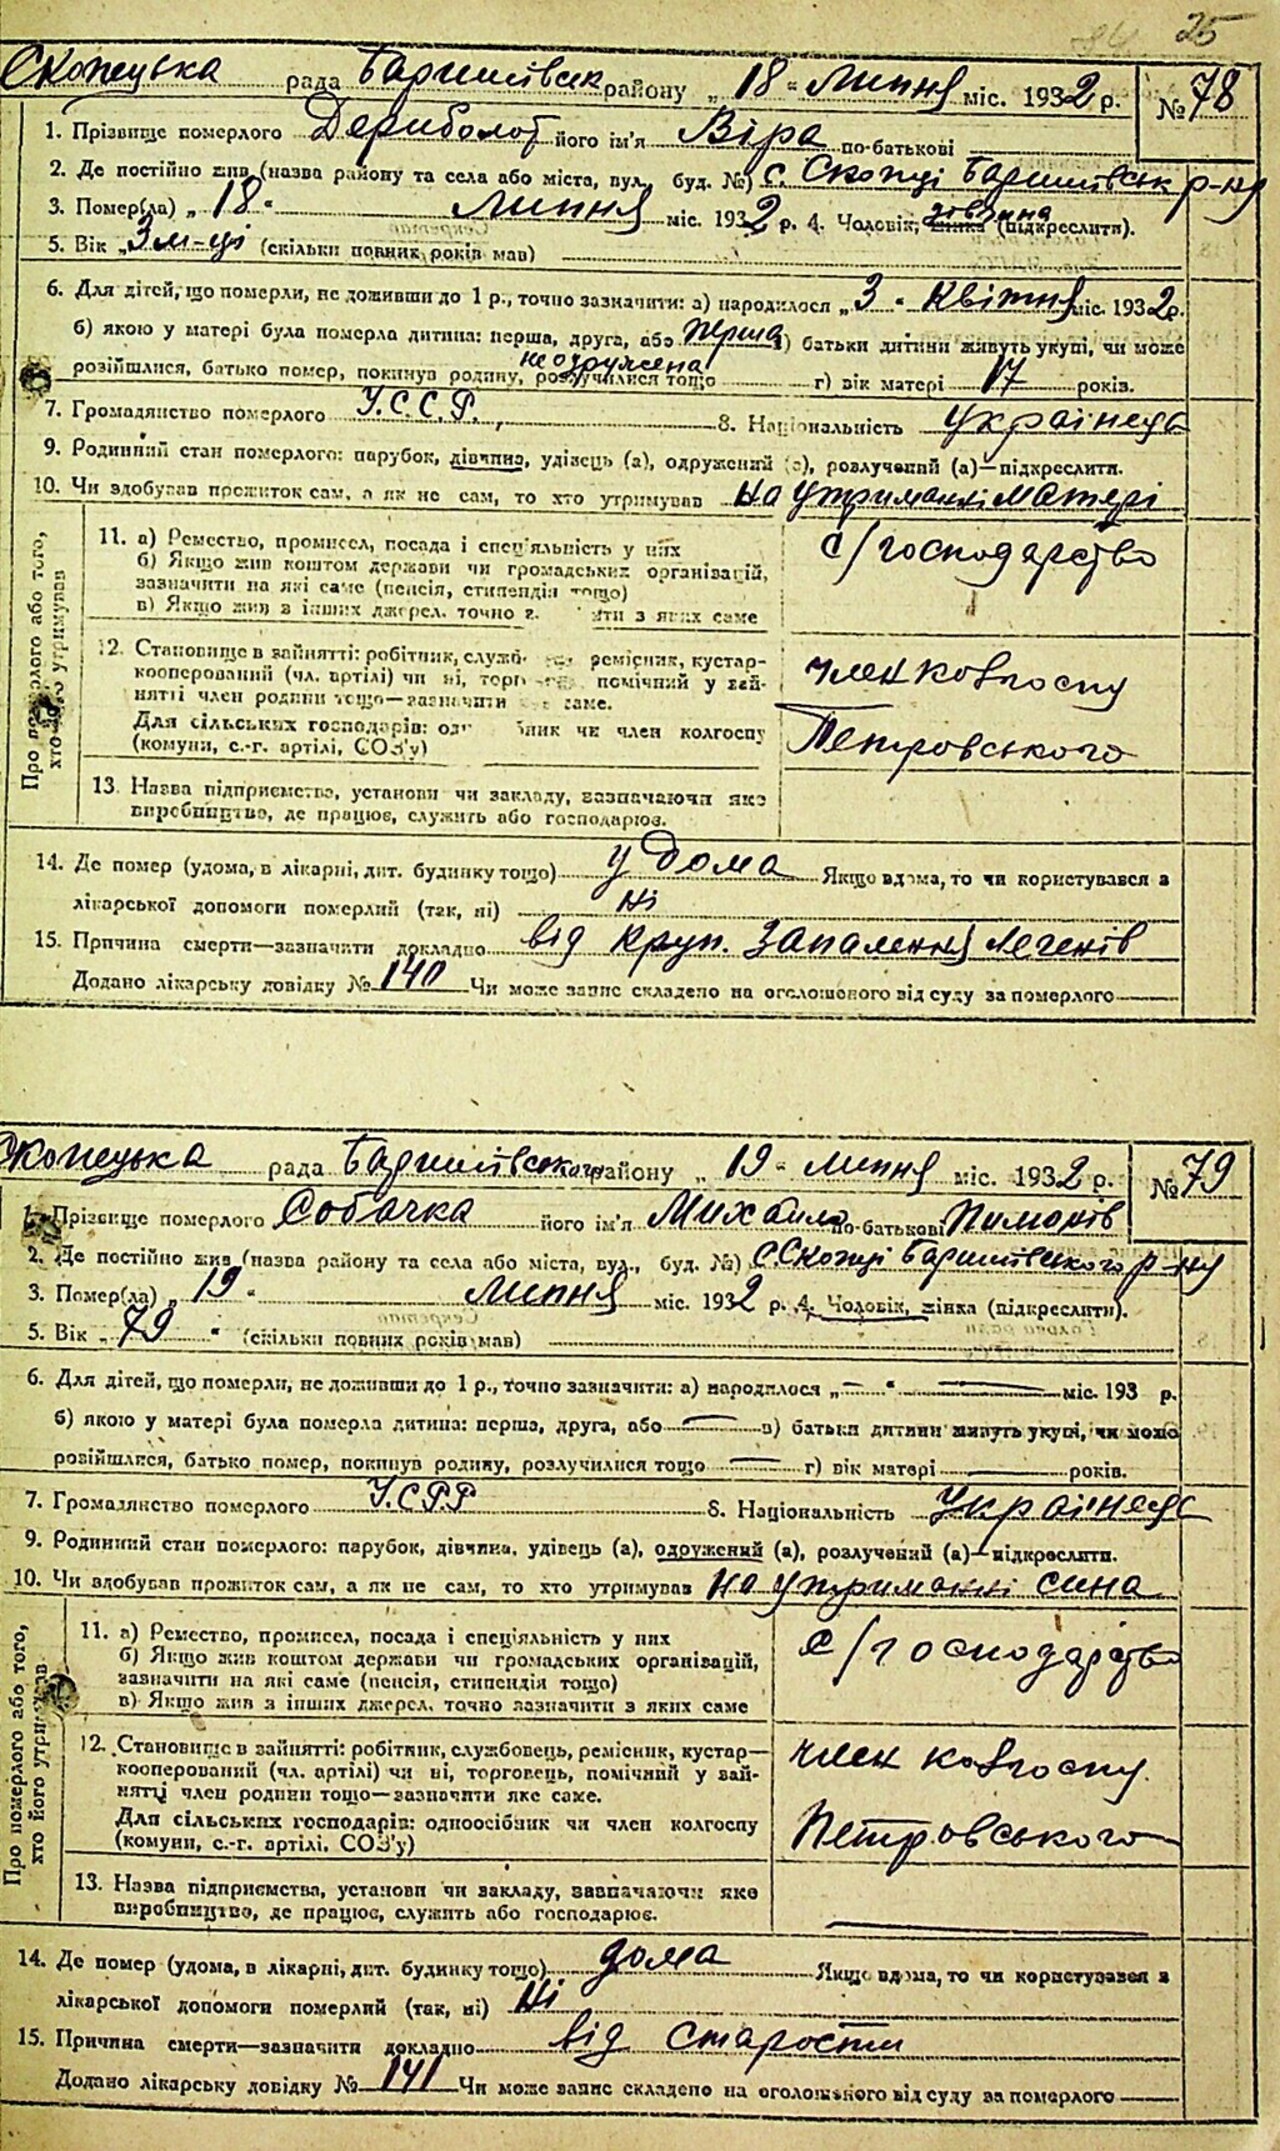 25
Скопецька рада Баришівськ району „18“ Липня міс. 1932 р. № 78
1. Прізвище померлого Дериболот його ім'я Віра по-батькові
2. Де постійно жив (назва району та села або міста, вул., буд. №) с. Скопці Баришівськ р-ну
3. Помер(ла) „18“ Липня міс. 1932 р. 4. Чоловік, жінка дівчина (підкреслити).
5. Вік „3 м-ці (скільки повних років мав)
6. Для дітей, що померли, не доживши до 1 р., точно зазначити: а) народилося „3“ Квітня міс. 1932 р.
б) якою у матері була померла дитина: перша, друга, або перша в) батьки дитини живуть укупі, чи може
розійшлися, батько помер, покинув родину, розлучилися тощо не одружена г) вік матері 17 років.
7. Громадянство померлого У.С.С.Р. 8. Національність Українець
9. Родинний стан померлого: парубок, дівчина, удівець (а), одружений (а), розлучений (а)—підкреслити.
10. Чи здобував прожиток сам, а як не сам, то хто утримував на утриманні матері
Про померлого або того, хто його утримував
11. а) Ремество, промисел, посада і спеціяльність у них
б) Якщо жив коштом держави чи громадських організацій,
зазначити на які саме (пенсія, стипендія тощо)
в) Якщо жив з інших джерел, точно з. ити з яких саме
с/господарство
12. Становище в зайнятті: робітник, служб. ремісник, кустар-
кооперований (чл. артілі) чи ні, торг помічний у зай-
нятті член родини тощо—зазначити яке саме.
Для сільських господарів: од бник чи член колгоспу
(комуни, с.-г. артілі, СОЗ'у)
член ковгоспу
Петровського
13. Назва підприємства, установи чи закладу, зазначаючи яке
виробництво, де працює, служить або господарює.
14. Де помер (удома, в лікарні, дит. будинку тощо) у дома Якщо вдома, то чи користувався з
лікарської допомоги померлий (так, ні) ні
15. Причина смерти—зазначити докладно від круп. запалення легенів
Додано лікарську довідку № 140 Чи може запис складено на оголошеного від суду за померлого
Скопецька рада Баришівського району „19“ Липня міс. 1932 р. № 79
1. Прізвище померлого Собачка його ім'я Михайло по-батькові Пимонів
2. Де постійно жив (назва району та села або міста, вул., буд. №) с. Скопці Баришівського р-ну
3. Помер(ла) „19“ Липня міс. 1932 р. 4. Чоловік, жінка (підкреслити).
5. Вік „79“ (скільки повних років мав)
6. Для дітей, що померли, не доживши до 1 р., точно зазначити: а) народилося „—“ — міс. 193 р.
б) якою у матері була померла дитина: перша, друга, або — в) батьки дитини живуть укупі, чи може
розійшлися, батько помер, покинув родину, розлучилися тощо — г) вік матері — років.
7. Громадянство померлого У.С.Р.Р 8. Національність Українець
9. Родинний стан померлого: парубок, дівчина, удівець (а), одружений (а), розлучений (а)—підкреслити.
10. Чи здобував прожиток сам, а як не сам, то хто утримував на утриманні сина
Про померлого або того, хто його утримував
11. а) Ремество, промисел, посада і спеціяльність у них
б) Якщо жив коштом держави чи громадських організацій,
зазначити на які саме (пенсія, стипендія тощо)
в) Якщо жив з інших джерел, точно зазначити з яких саме
с/господарство
12. Становище в зайнятті: робітник, службовець, ремісник, кустар—
кооперований (чл. артілі) чи ні, торговець, помічний у зай-
нятті член родини тощо—зазначити яке саме.
Для сільських господарів: одноосібник чи член колгоспу
(комуни, с.-г. артілі, СОЗ'у)
член ковгоспу
Петровського
13. Назва підприємства, установи чи закладу, зазначаючи яке
виробництво, де працює, служить або господарює.
14. Де помер (удома, в лікарні, дит. будинку тощо) дома Якщо вдома, то чи користувався з
лікарської допомоги померлий (так, ні) ні
15. Причина смерти—зазначити докладно від старости
Додано лікарську довідку № 141 Чи може запис складено на оголошеного від суду за померлого